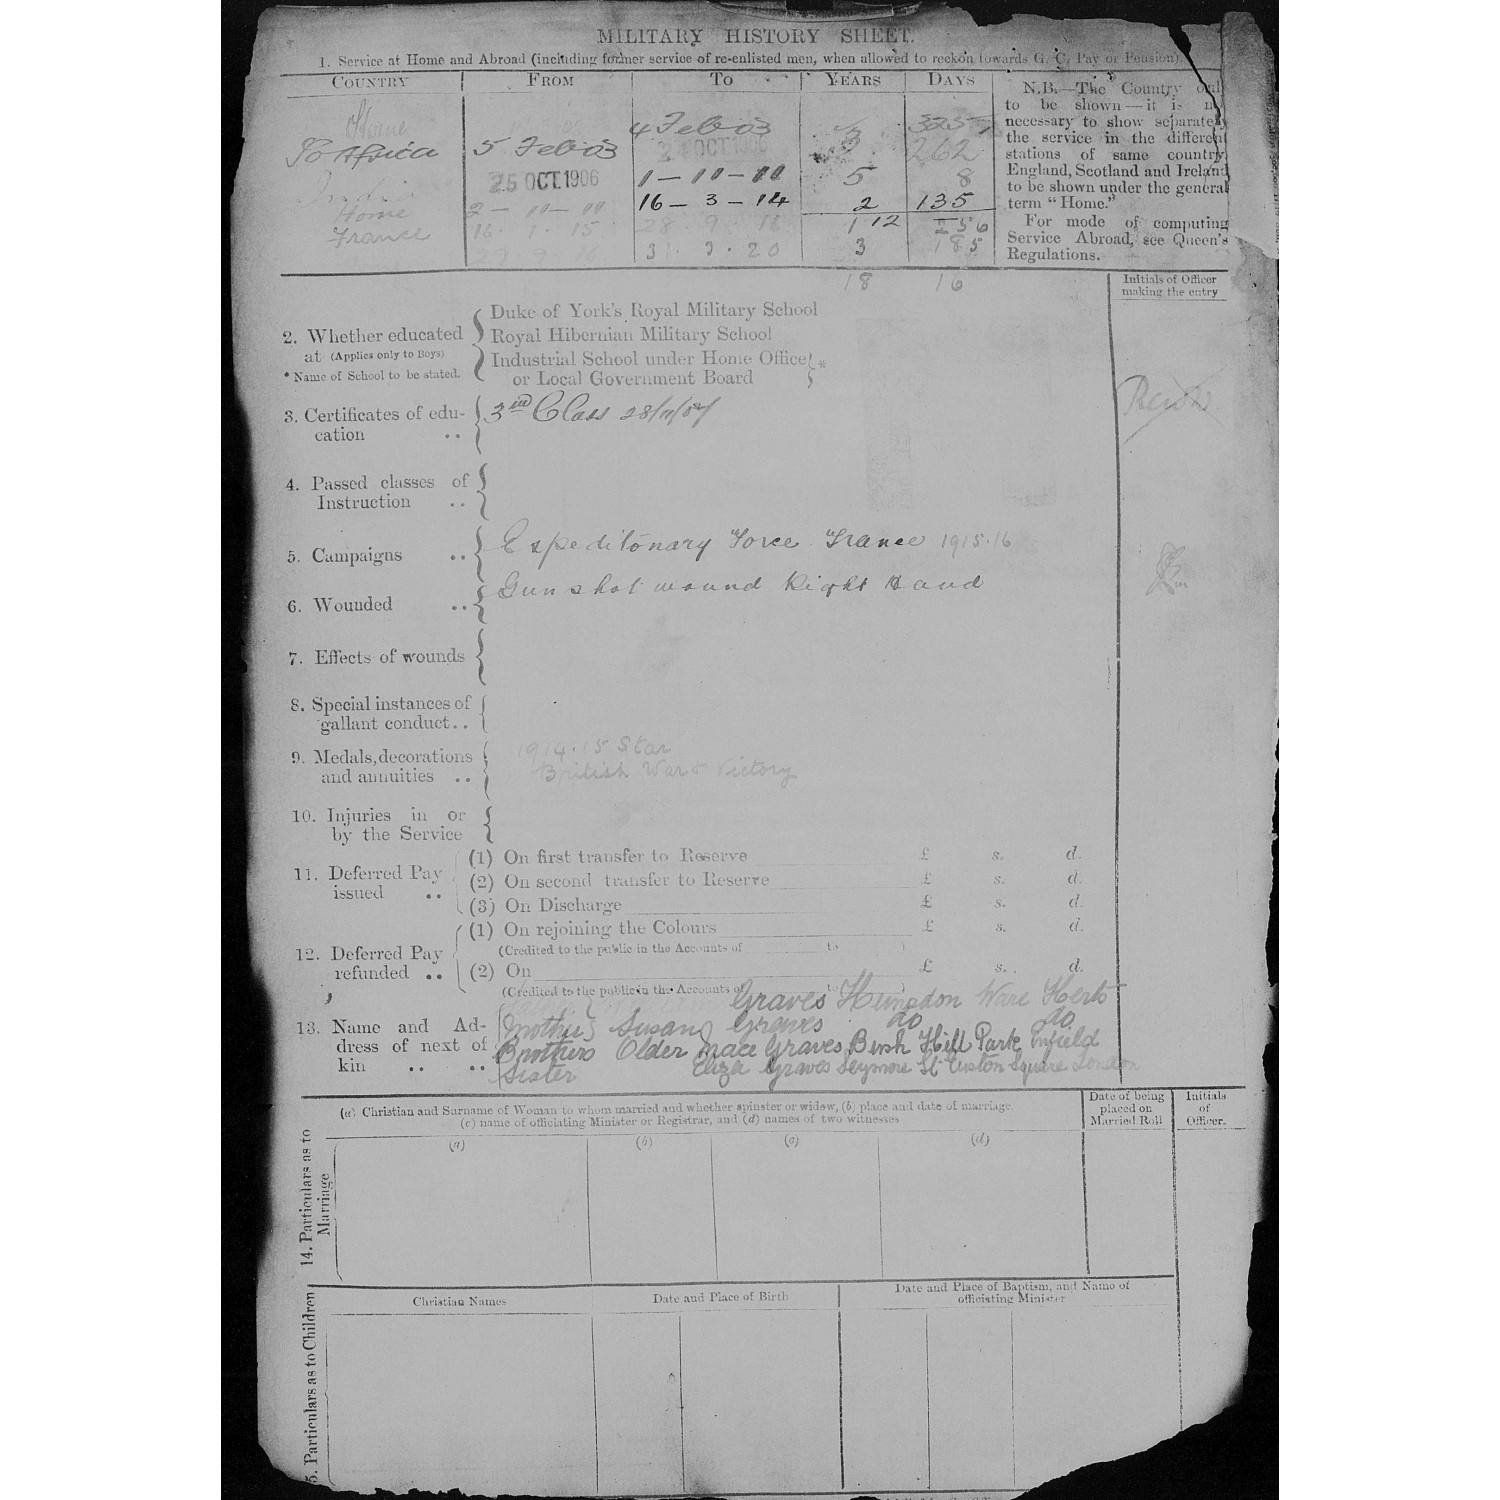 MILITARY HISTORY SHEET.
1. Service at Home and Abroad (including former service of re-enlisted men, when allowed to reckon towards G. C. Pay or Pension).
COUNTRY FROM TO YEARS DAYS
Home 4 Feb 03 325
So Africa 5 Feb 03 24 OCT 1906 3 262
25 OCT. 1906 1-11-11 5 8
Home 2-11-11 16-3-14 2 135
France 16.1.15 28.9.16 1 256
31.3.20 3 185
12
18 16
N.B.—The Country only
to be shown—it is
necessary to show separately
the service in the different
stations of same country.
England, Scotland and Ireland
to be shown under the general
term "Home."
For mode of computing
Service Abroad, see Queen's
Regulations.
Initials of Officer
making the entry
2. Whether educated
at (Applies only to Boys)
* Name of School to be stated.
Duke of York's Royal Military School
Royal Hibernian Military School
Industrial School under Home Office
or Local Government Board *
3. Certificates of edu-
cation ..
3rd Class
4. Passed classes of
Instruction ..
5. Campaigns .. Expeditonary Force France 1915.16
6. Wounded .. Gun shot wound Right Hand
7. Effects of wounds
8. Special instances of
gallant conduct..
9. Medals, decorations
and annuities ..
1914.15 Star
British War & Victory
10. Injuries in or
by the Service
11. Deferred Pay
issued ..
(1) On first transfer to Reserve £ s. d.
(2) On second transfer to Reserve £ s. d.
(3) On Discharge £ s. d.
12. Deferred Pay
refunded ..
(1) On rejoining the Colours £ s. d.
(Credited to the public in the Accounts of to )
(2) On £ s. d.
(Credited to the public in the Accounts of to
13. Name and Ad-
dress of next of
kin .. ..
Graves Hunsdon Ware Herts
Mother Susan Graves do do
Brothers Older Mace Graves, Bush Hill Park Enfield
Sister Eliza Graves Seymore St Euston Square London
14. Particulars as to
Marriage
(a) Christian and Surname of Woman to whom married and whether spinster or widow, (b) place and date of marriage,
(c) name of officiating Minister or Registrar, and (d) names of two witnesses
Date of being
placed on
Married Roll
Initials
of
Officer.
(a) (b) (c) (d)
5. Particulars as to Children
Christian Names
Date and Place of Birth
Date and Place of Baptism, and Name of
officiating Minister